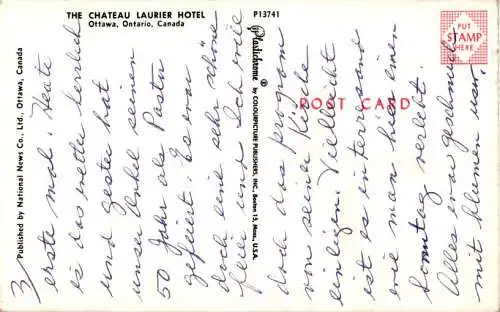 THE CHATEAU LAURIER HOTEL
Ottawa, Ontario, Canada
P13741
Published by National News Co., Ltd., Ottawa, Canada
Plastichrome ®
by COLOURPICTURE PUBLISHERS, INC., Boston 15, Mass., U.S.A.
POST CARD
PUT
STAMP
HERE
3/
erste mal. Heute
is das wetter herlich
und gester hat
unser Onkel seinen
50 Jahr als Pastor
gefeiert. Es war
doch eine sehr schöne
feier und Ich will
doch das program
von seiner Kirche
einligen. Vielleicht
ist es interresand
wie man hier einen
Sonntag verlebt.
Alles war geschmück
mit blumen war,